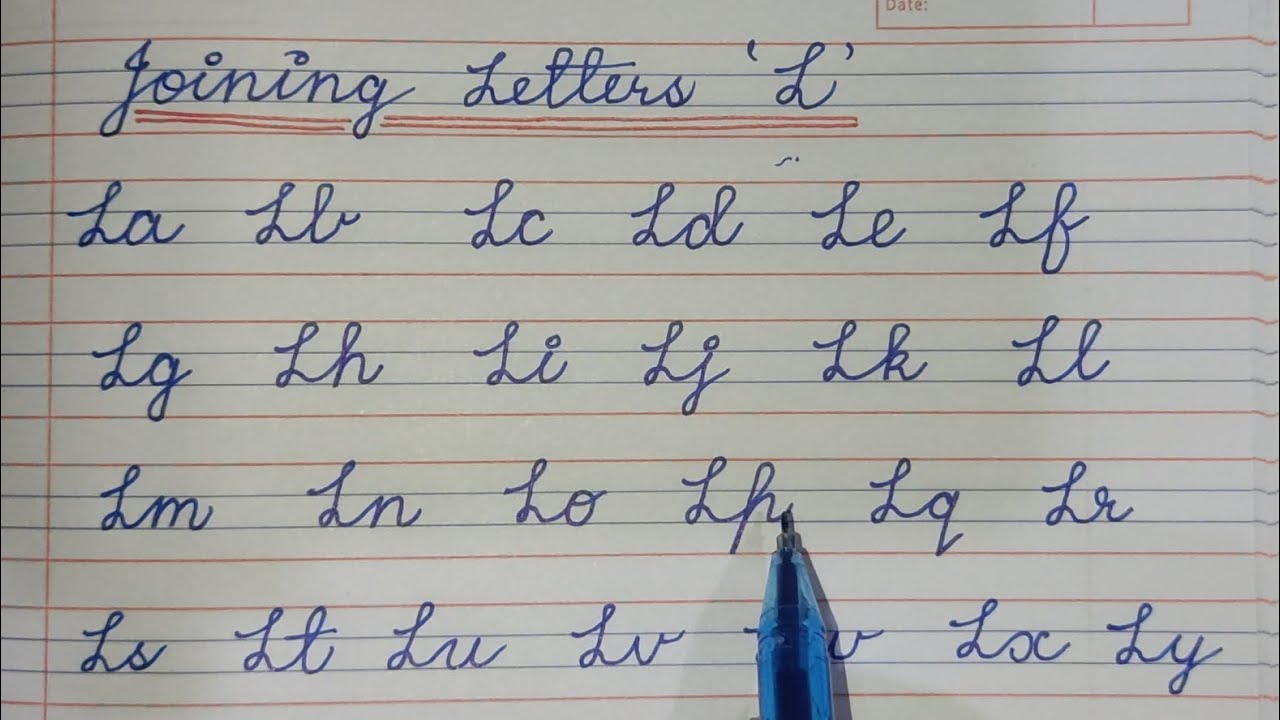 Date:
Joining Letters ‘L’
La Lb Lc Ld Le Lf
Lg Lh Li Lj Lk Ll
Lm Ln Lo Lp Lq Lr
Ls Lt Lu Lv Lx Ly